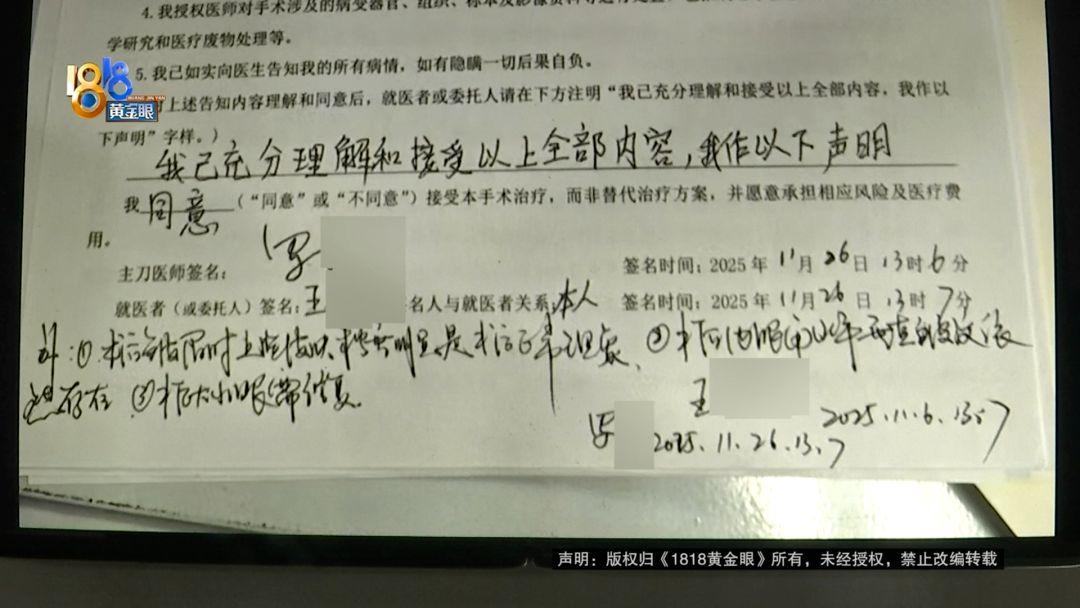 4.我授权医师对手术涉及的病变器官、组织、标本及影像资料等进行处置，
学研究和医疗废物处理等。
5.我已如实向医生告知我的所有病情，如有隐瞒一切后果自负。
1818
黄金眼
对上述告知内容理解和同意后，就医者或委托人请在下方注明“我已充分理解和接受以上全部内容，我作以
下声明”字样。）
我已充分理解和接受以上全部内容，我作以下声明
我 同意 （“同意”或“不同意”）接受本手术治疗，而非替代治疗方案，并愿意承担相应风险及医疗费
用。
主刀医师签名： 签名时间：2025年 11月 26日 13时 6分
就医者（或委托人）签名：王 名人与就医者关系 本人 签名时间：2025年 11月 26日 13时 7分
是术后正常现象
存在 ③术后大小眼
王
2025.11.6.13:7
2025.11.26.13.7
声明：版权归《1818黄金眼》所有，未经授权，禁止改编转载